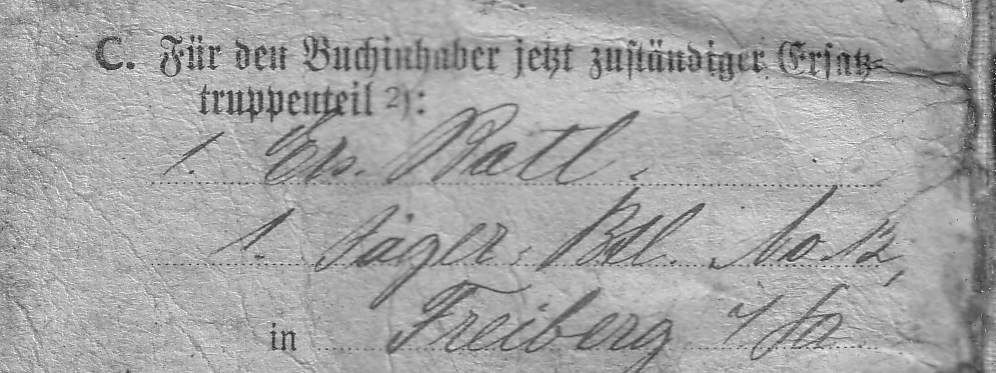 C. Für den Buchinhaber jetzt zuständiger Ersatz-
truppenteil 2):
1. Ers. Batl.
1. Jäger-Btl. No. 12,
in Freiberg i/Sa